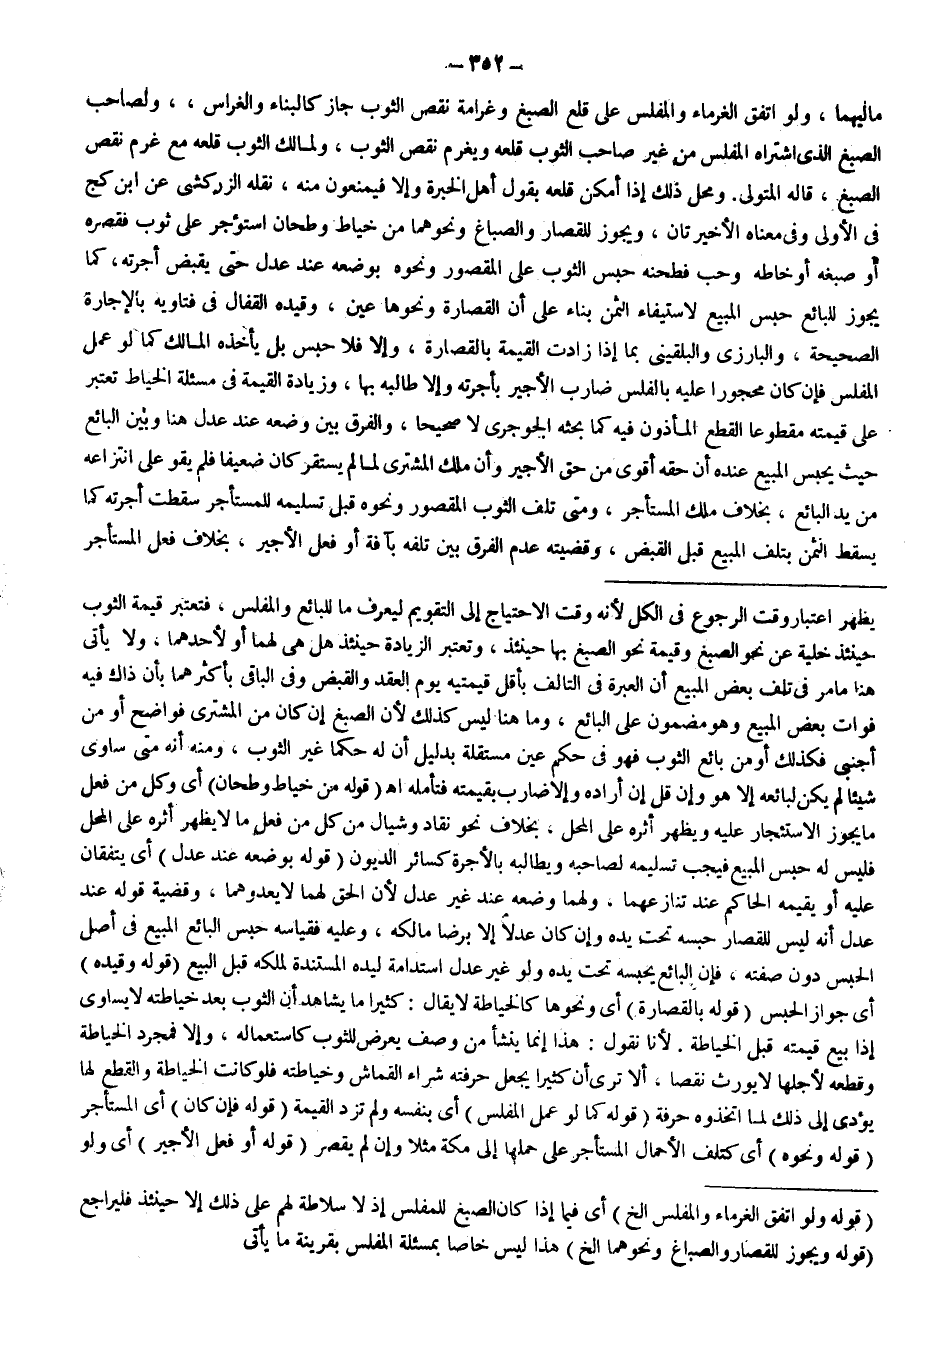 – ٣٥٢ –
ماليهما ، ولو اتفق الغرماء والمفلس على قلع الصبغ وغرامة نقص الثوب جاز كالبناء والغراس ، ، ولصاحب
الصبغ الذى اشتراه المفلس من غير صاحب الثوب قلعه ويغرم نقص الثوب ، ولمالك الثوب قلعه مع غرم نقص
الصبغ ، قاله المتولى. ومحل ذلك إذا أمكن قلعه بقول أهل الخبرة وإلا فيمنعون منه ، نقله الزركشى عن ابن كج
فى الأولى وفى معناه الأخيرتان ، ويجوز للقصار والصباغ ونحوهما من خياط وطحان استؤجر على ثوب فقصره
أو صبغه أو خاطه وحب فطحنه حبس الثوب على المقصور ونحوه بوضعه عند عدل حتى يقبض أجرته، كما
يجوز للبائع حبس المبيع لاستيفاء الثمن بناء على أن القصارة ونحوها عين ، وقيده القفال فى فتاويه بالإجارة
الصحيحة ، والبارزى والبلقينى بما إذا زادت القيمة بالقصارة ، وإلا فلا حبس بل يأخذه المالك كما لو عمل
المفلس فإن كان محجورا عليه بالفلس ضارب الأجير بأجرته وإلا طالبه بها ، وزيادة القيمة فى مسئلة الخياط تعتبر
على قيمته مقطوعا القطع المأذون فيه كما بحثه الجوجرى لا صحيحا ، والفرق بين وضعه عند عدل هنا وبين البائع
حيث يحبس المبيع عنده أن حقه أقوى من حق الأجير وأن ملك المشترى لما لم يستقر كان ضعيفا فلم يقو على انتزاعه
من يد البائع ، بخلاف ملك المستأجر ، ومتى تلف الثوب المقصور ونحوه قبل تسليمه للمستأجر سقطت أجرته كما
يسقط الثمن بتلف المبيع قبل القبض ، وقضيته عدم الفرق بين تلفه بآفة أو فعل الأجير ، بخلاف فعل المستأجر
يظهر اعتبار وقت الرجوع فى الكل لأنه وقت الاحتياج إلى التقويم ليعرف ما للبائع والمفلس ، فتعتبر قيمة الثوب
حينئذ خلية عن نحو الصبغ وقيمة نحو الصبغ بها حينئذ ، وتعتبر الزيادة حينئذ هل هى لهما أو لأحدهما ، ولا يأتى
هنا مامر فى تلف بعض المبيع أن العبرة فى التالف بأقل قيمتيه يوم العقد والقبض وفى الباقى بأكثرهما بأن ذاك فيه
فوات بعض المبيع وهو مضمون على البائع ، وما هنا ليس كذلك لأن الصبغ إن كان من المشترى فواضح أو من
أجنبى فكذلك أو من بائع الثوب فهو فى حكم عين مستقلة بدليل أن له حكما غير الثوب ، ومنه أنه متى ساوى
شيئا لم يكن لبائعه إلا هو وإن قل إن أراده وإلا ضارب بقيمته فتأمله اه ( قوله من خياط وطحان) أى وكل من فعل
مايجوز الاستئجار عليه ويظهر أثره على المحل ، بخلاف نحو نقاد وشيال من كل من فعل ما لا يظهر أثره على المحل
فليس له حبس المبيع فيجب تسليمه لصاحبه ويطالبه بالأجرة كسائر الديون ( قوله بوضعه عند عدل ) أى يتفقان
عليه أو يقيمه الحاكم عند تنازعهما ، ولهما وضعه عند غير عدل لأن الحق لهما لايعدوهما ، وقضية قوله عند
عدل أنه ليس للقصار حبسه تحت يده وإن كان عدلاً إلا برضا مالكه ، وعليه فقياسه حبس البائع المبيع فى أصل
الحبس دون صفته ، فإن البائع يحبسه تحت يده ولو غير عدل استدامة ليده المستندة لملكه قبل البيع (قوله وقيده )
أى جواز الحبس ( قوله بالقصارة ) أى ونحوها كالخياطة لايقال : كثيرا ما يشاهد أن الثوب بعد خياطته لايساوى
إذا بيع قيمته قبل الخياطة . لأنا نقول : هذا إنما ينشأ من وصف يعرض للثوب كاستعماله ، وإلا فمجرد الخياطة
وقطعه لأجلها لايورث نقصا ، ألا ترى أن كثيرا يجعل حرفته شراء القماش وخياطته فلو كانت الخياطة والقطع لها
يؤدى إلى ذلك لما اتخذوه حرفة ( قوله كما لو عمل المفلس ) أى بنفسه ولم تزد القيمة ( قوله فإن كان ) أى المستأجر
( قوله ونحوه ) أى كتلف الأحمال المستأجر على حملها إلى مكة مثلا وإن لم يقصر ( قوله أو فعل الأجير ) أى ولو
( قوله ولو اتفق الغرماء والمفلس الخ ) أى فيما إذا كان الصبغ للمفلس إذ لا سلاطة لهم على ذلك إلا حينئذ فليراجع
(قوله ويجوز للقصار والصباغ ونحوهما الخ ) هذا ليس خاصا بمسئلة المفلس بقرينة ما يأتى